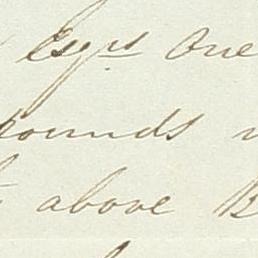 Esqrs One
pounds
above B